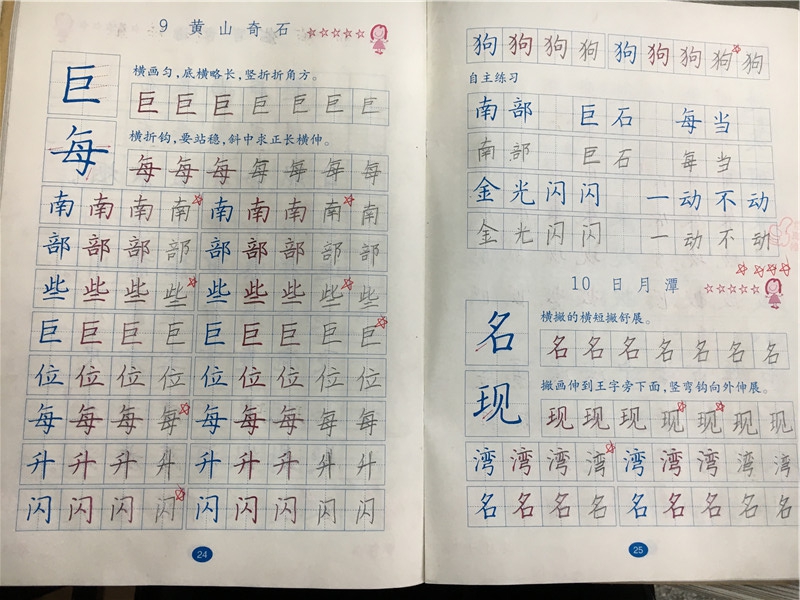 9 黄山奇石
巨
横画匀，底横略长，竖折折角方。
巨巨巨巨巨巨巨
每
横折钩，要站稳，斜中求正长横伸。
每每每每每每每
南南南南南南南南南
部部部部部部部部部
些些些些些些些些些
巨巨巨巨巨巨巨巨巨
位位位位位位位位位
每每每每每每每每每
升升升升升升升升升
闪闪闪闪闪闪闪闪闪
24
狗狗狗狗狗狗狗狗狗
自主练习
南部 巨石 每当
南部 巨石 每当
金光闪闪 一动不动
金光闪闪 一动不动
10 日月潭
名
横撇的横短撇舒展。
名名名名名名名
现
撇画伸到王字旁下面，竖弯钩向外伸展。
现现现现现现现
湾湾湾湾湾湾湾湾湾
名名名名名名名名名
25